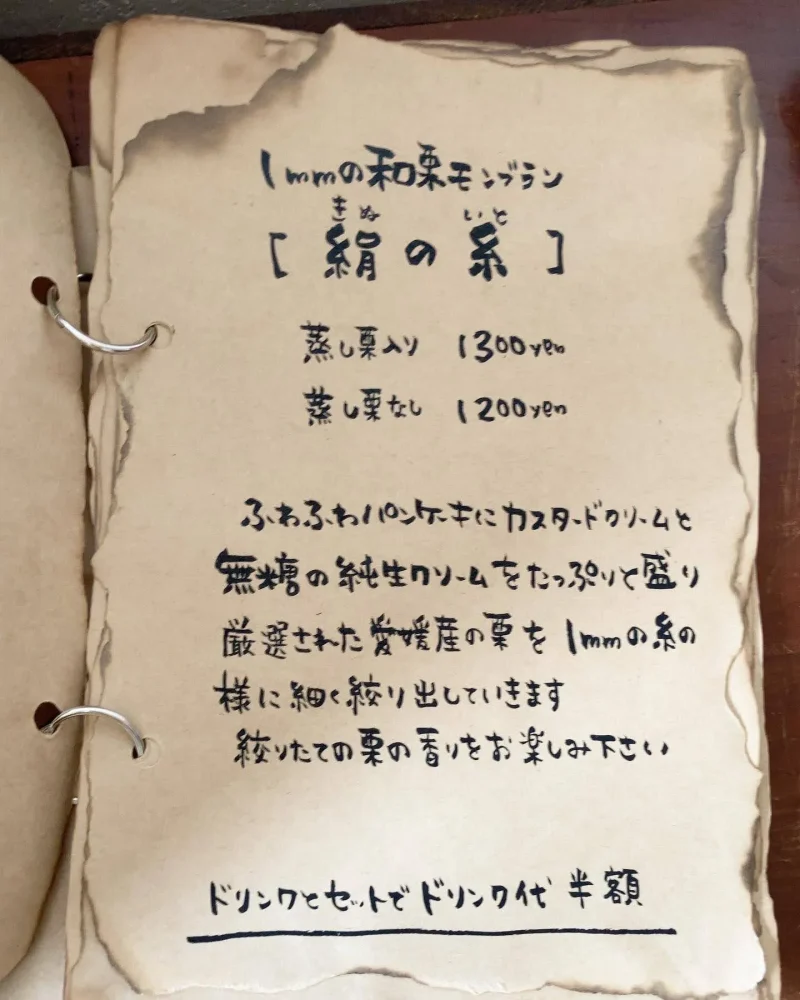 1mmの和栗モンブラン
きぬ いと
[ 絹の糸 ]
蒸し栗入り 1300yen
蒸し栗なし 1200yen
ふわふわパンケーキにカスタードクリームと
無糖の純生クリームをたっぷりと盛り
厳選された愛媛産の栗を1mmの糸の
様に細く絞り出していきます
絞りたての栗の香りをお楽しみ下さい
ドリンクとセットでドリンク代 半額